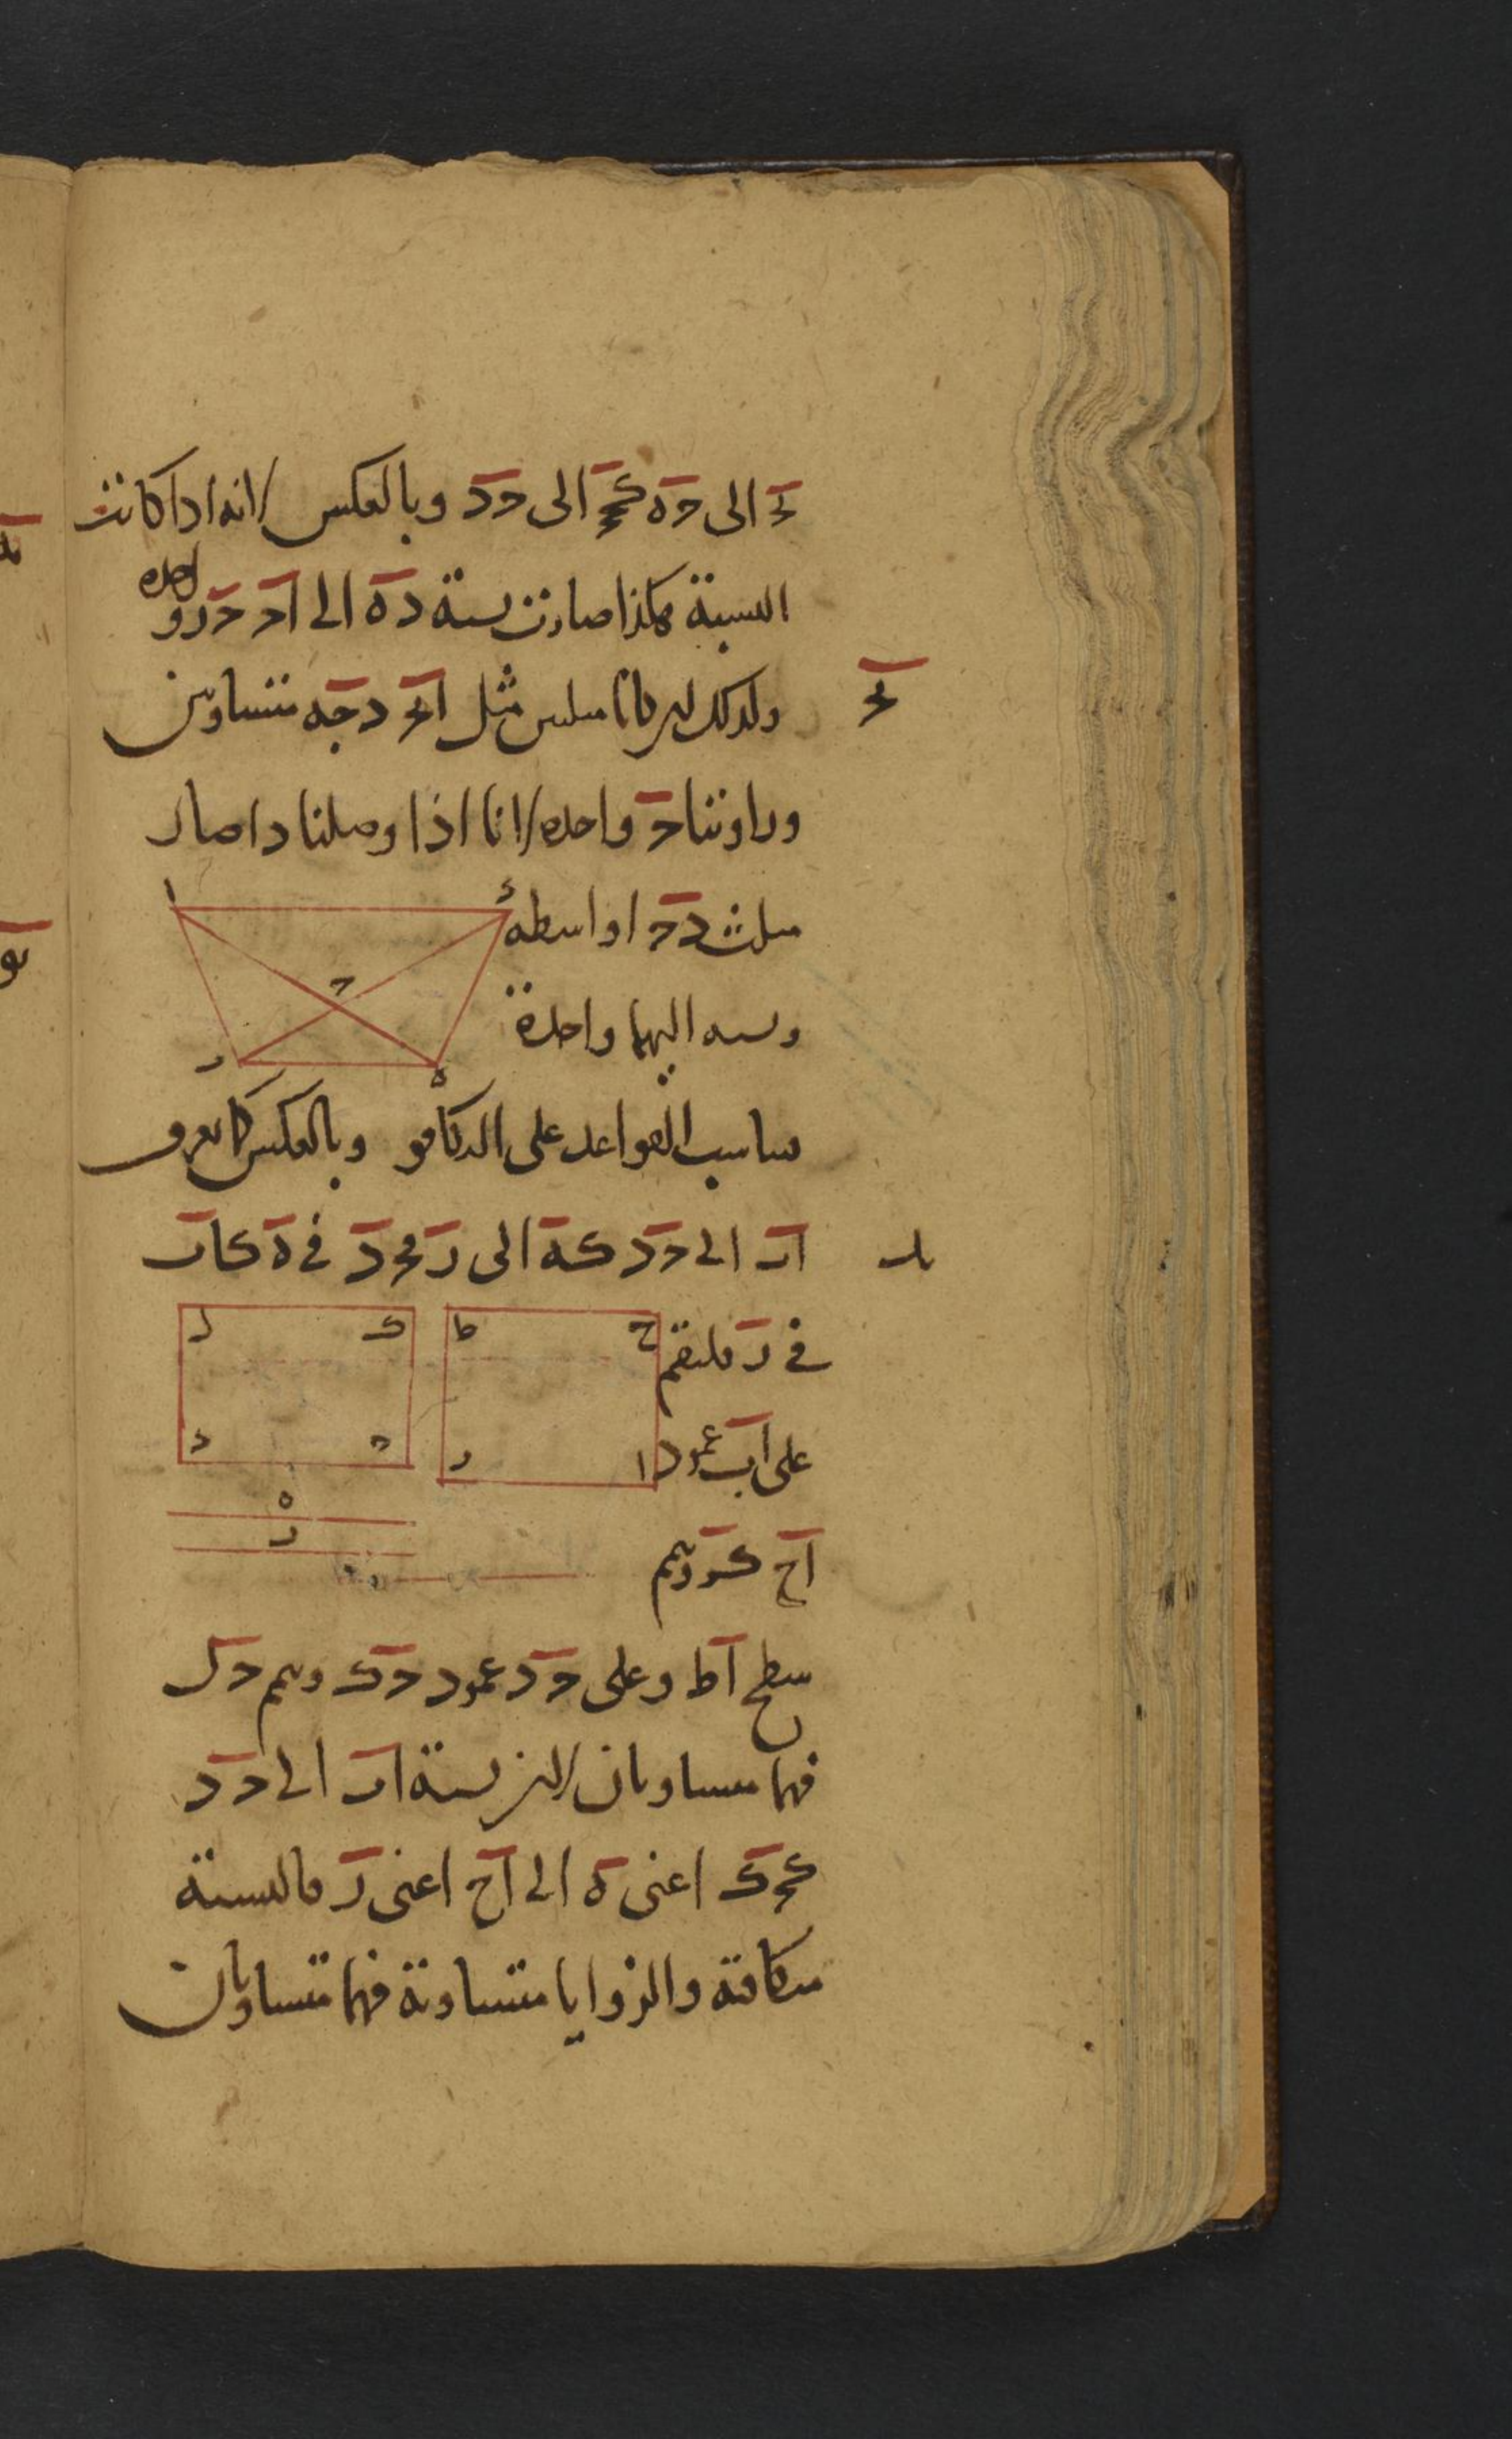 ﺣ الى حه كبح الى حد وبالعكس لانه اذا كانت
النسبة هكذا صارت نسبة ده الى اد حد و
احده
ولذلك ان كانا مثلثين مثل ابح دجه متساويين
وزاويتا ح واحده لانا اذا وصلنا دا صار
مثلث دح ا واسطه
ونسبه اليهما واحدة
تناسب القواعد على التكافو وبالعكس كما تعرف
اب الى حد كه الى ر فحد في ه كاب
في ر فلنقم
على اب عمود
اح كر ونتمم
سطح اط وعلى حد عمود حك ونتمم حل
فهما متساويان لان نسبة اب الى حد
كحك اعنى ه الى اح اعنى ر فالنسبة
متكافئة والزوايا متساوية فهما متساويان
ا
د
ح
ر
ه
ل
ك
ط
ح
د
ح
ب
ا
ه
ر